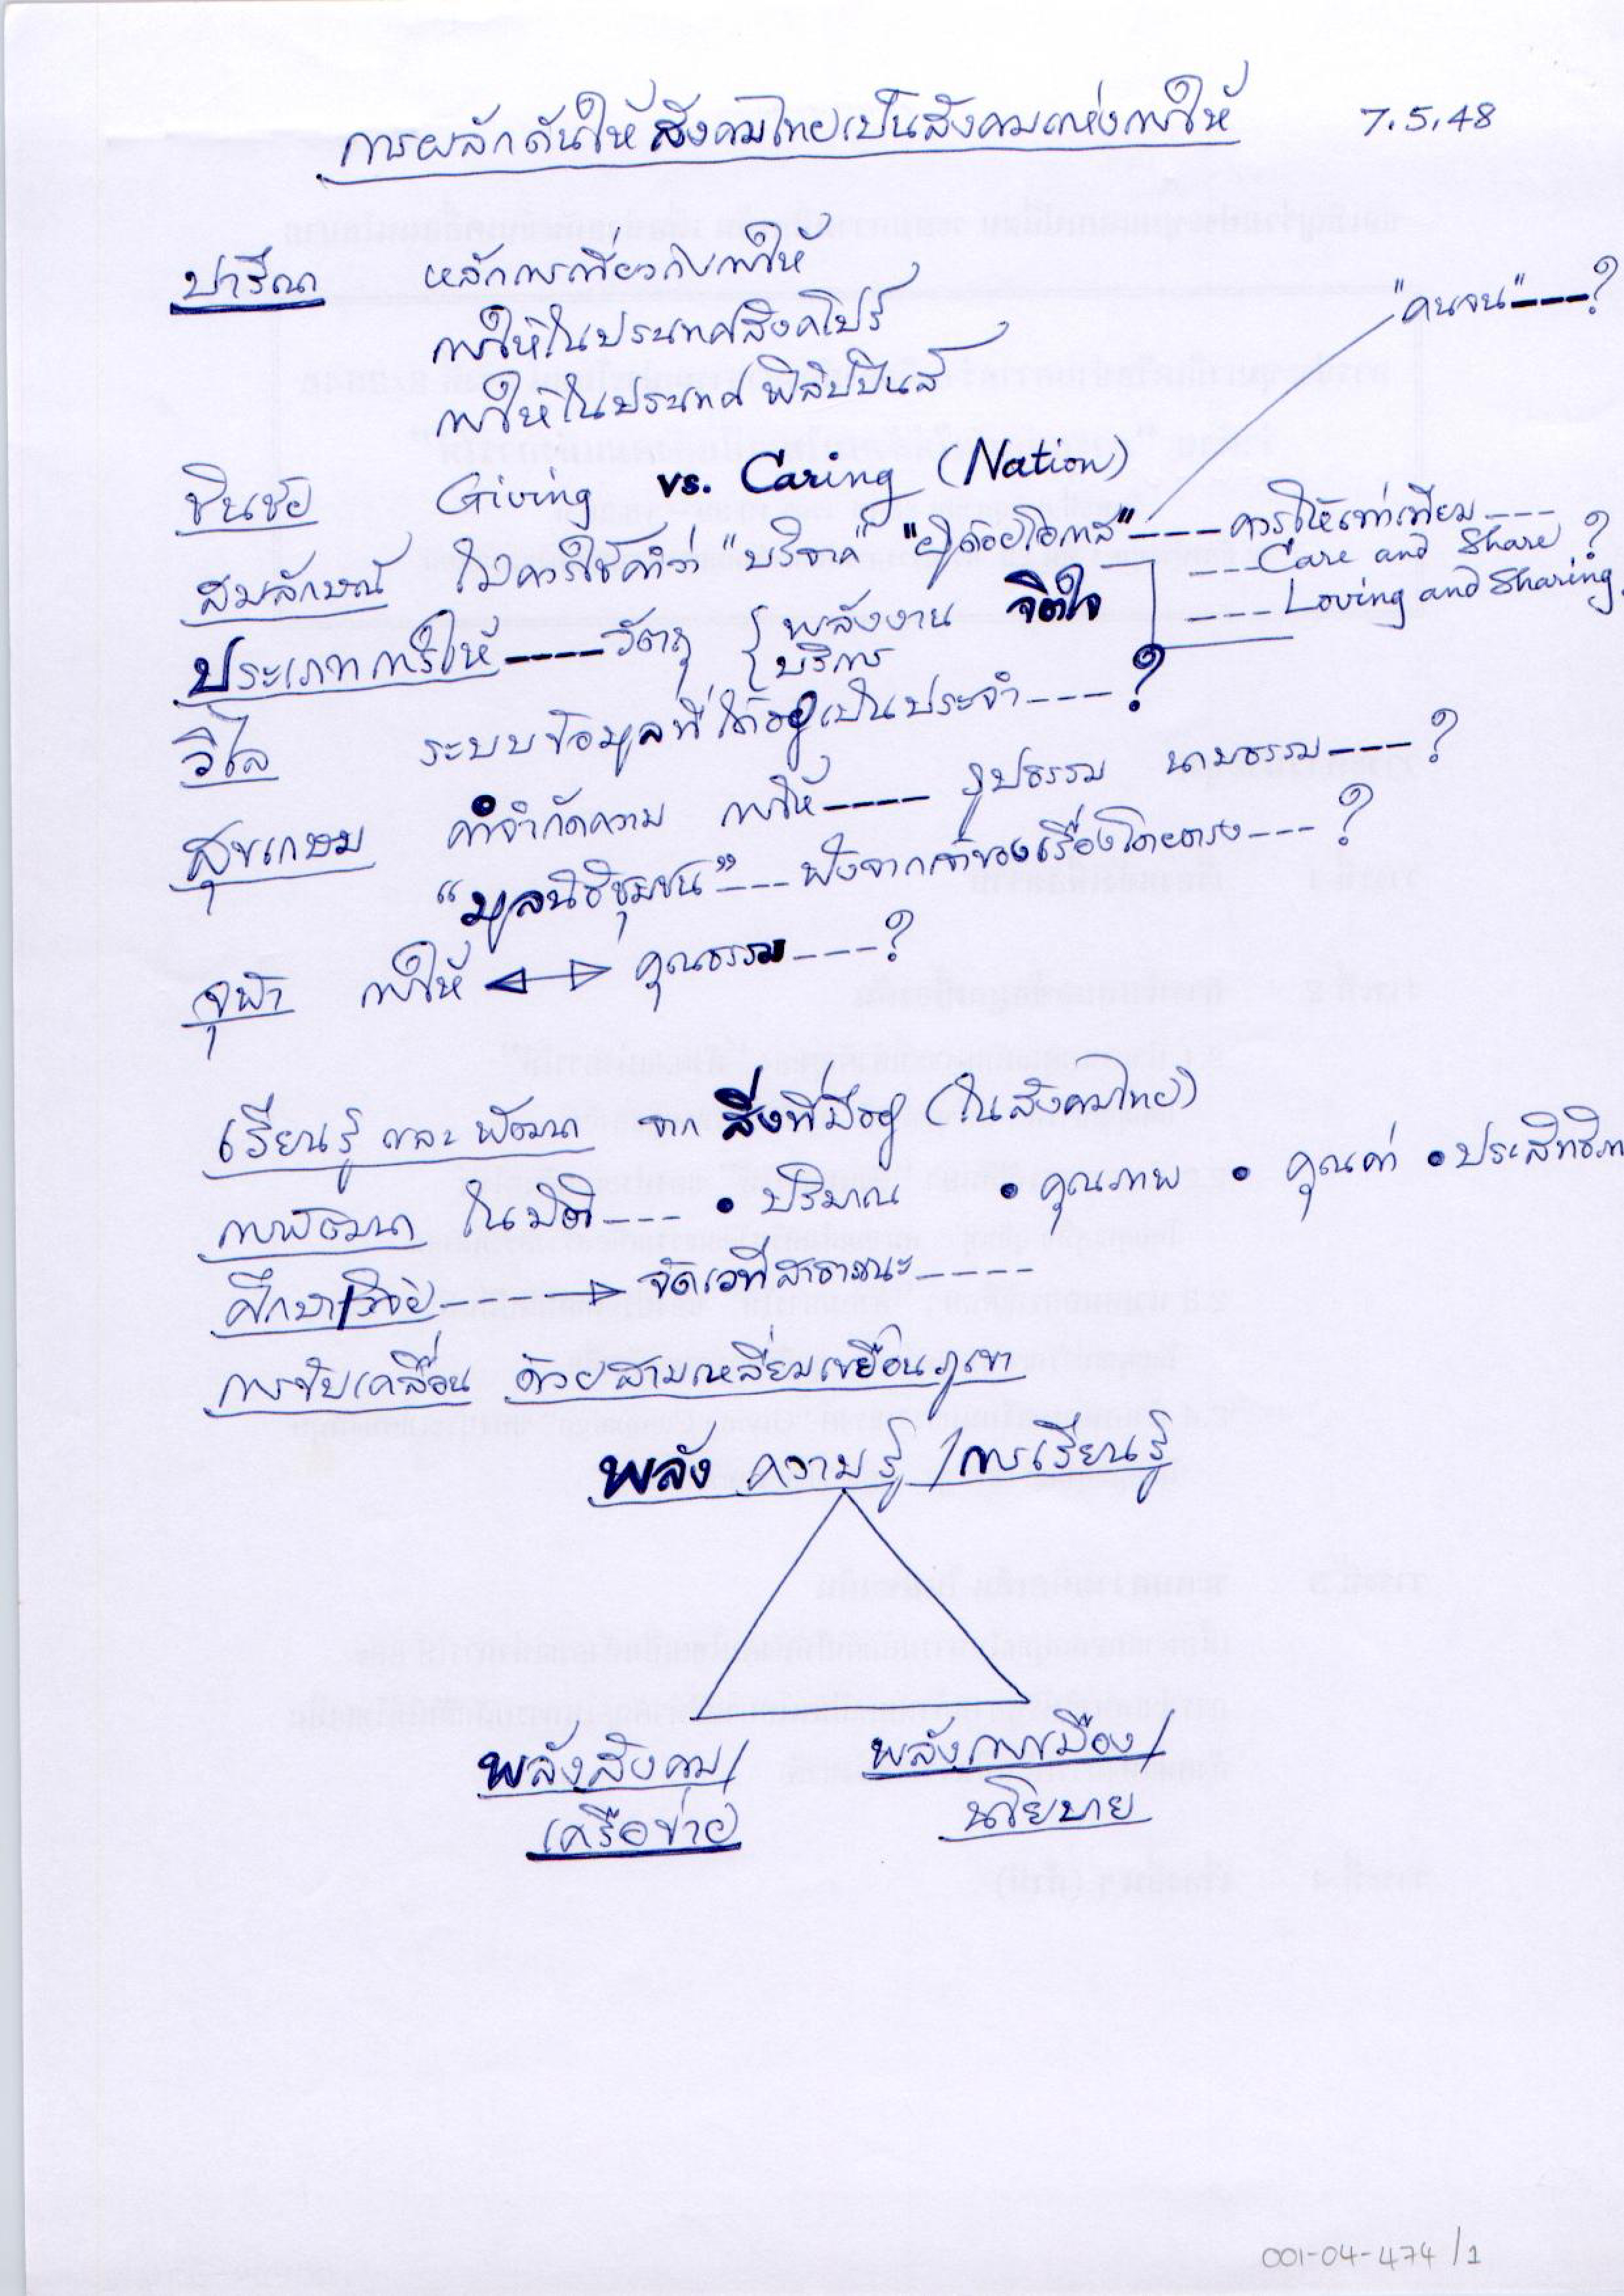 การผลักดันให้สังคมไทยเป็นสังคมแห่งการให้ 7.5.48
ปาริณา หลักการเกี่ยวกับการให้
การให้ในประเทศสิงคโปร์
การให้ในประเทศฟิลิปปินส์
"คนจน"---?
ชินชัย Giving vs. Caring (Nation)
สมลักษณ์ ไม่ควรใช้คำว่า "บริจาค" "ผู้ด้อยโอกาส"---ควรให้เท่าเทียม---
---Care and Share?
---Loving and Sharing
ประเภทการให้----วัตถุ { พลังงาน จิตใจ
{ บริการ
วิไล ระบบข้อมูลที่ใช้อยู่เป็นประจำ---?
สุขเกษม คำจำกัดความ การให้---- รูปธรรม นามธรรม---?
"มูลนิธิชุมชน"---ฟังจากเจ้าของเรื่องโดยตรง---?
จุฬา การให้ ↔ คุณธรรม---?
เรียนรู้ และ พัฒนา จาก สิ่งที่มีอยู่ (ในสังคมไทย)
การพัฒนา ในมิติ--- • ปริมาณ • คุณภาพ • คุณค่า • ประสิทธิภา
ศึกษา/วิจัย----→ จัดเวทีสาธารณะ----
การขับเคลื่อน ด้วยสามเหลี่ยมเขยื้อนภูเขา
พลัง ความรู้/การเรียนรู้
พลังสังคม/ พลังการเมือง/
เครือข่าย นโยบาย
001-04-474/1